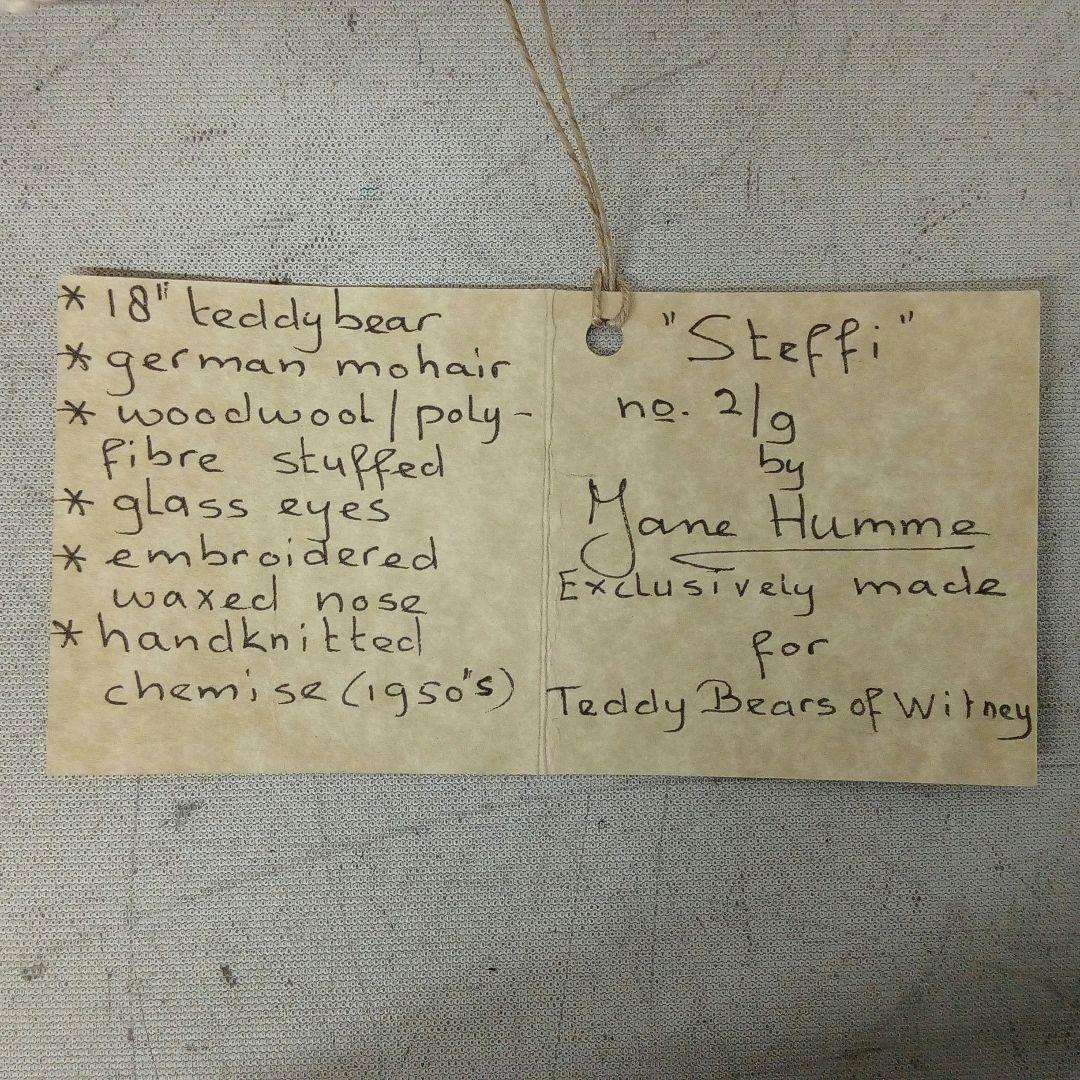 * 18" teddybear
* german mohair
* woodwool/poly-
fibre stuffed
* glass eyes
* embroidered
waxed nose
* handknitted
chemise (1950's)
"Steffi"
no. 2/9
by
Jane Humme
Exclusively made
for
Teddy Bears of Witney